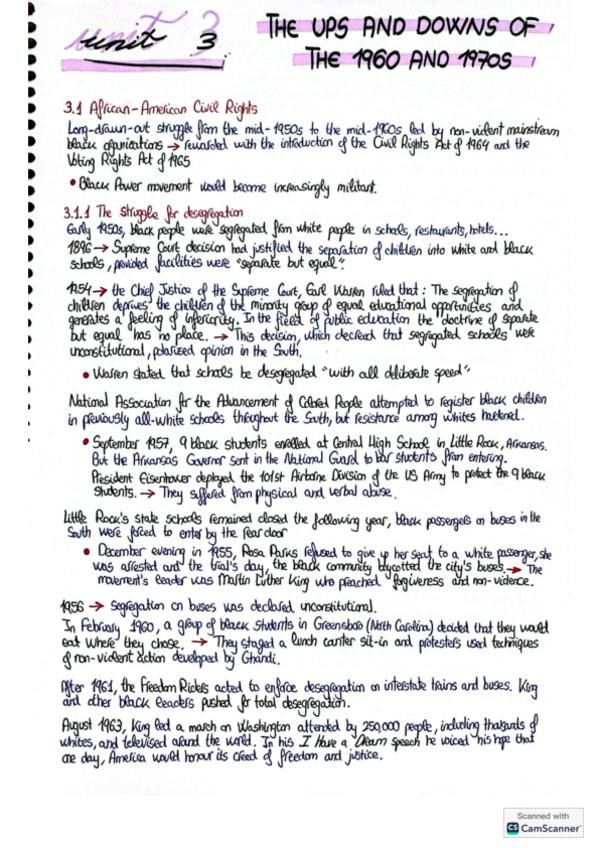 unit 3
3
THE UPS AND DOWNS OF
THE 1960 AND 1970S
3.1 African-American Civil Rights
Long-drawn-out struggle from the mid-1950s to the mid-1960s led by non-violent mainstream
black organisations → rewarded with the introduction of the Civil Rights Act of 1964 and the
Voting Rights Act of 1965
• Black Power movement would become increasingly militant.
3.1.1 The struggle for desegregation
Early 1950s, black people were segregated from white people in schools, restaurants, hotels...
1896 → Supreme Court decision had justified the separation of children into white and black
schools, provided facilities were "separate but equal".
1954 → the Chief Justice of the Supreme Court, Earl Warren ruled that: The segregation of
children deprives the children of the minority group of equal educational opportunities and
generates a feeling of inferiority. In the field of public education the doctrine of separate
but equal has no place. → This decision, which decreed that segregated schools were
unconstitutional, polarized opinion in the South.
• Warren stated that schools be desegregated "with all deliberate speed"
National Association for the Advancement of Colored People attempted to register black children
in previously all-white schools throughout the South, but resistance among whites hardened.
• September 1957, 9 black students enrolled at Central High School in Little Rock, Arkansas.
But the Arkansas Governor sent in the National Guard to bar students from entering.
President Eisenhower deployed the 101st Airborne Division of the US Army to protect the 9 black
students. → They suffered from physical and verbal abuse.
Little Rock's state schools remained closed the following year, black passengers on buses in the
South were forced to enter by the rear door
• December evening in 1955, Rosa Parks refused to give up her seat to a white passenger, she
was arrested and the trial's day, the black community boycotted the city's buses. → The
movement's leader was Martin Luther King who preached forgiveness and non-violence.
1956 → segregation on buses was declared unconstitutional.
In February 1960, a group of black students in Greensboro (North Carolina) decided that they would
eat where they chose. → They staged a lunch counter sit-in and protesters used techniques
of non-violent action developed by Ghandi.
After 1961, the Freedom Riders acted to enforce desegregation on interstate trains and buses. King
and other black leaders pushed for total desegregation.
August 1963, King led a march on Washington attended by 250,000 people, including thousands of
whites, and televised around the world. In his I Have a Dream speech he voiced his hope that
one day, America would honour its creed of freedom and justice.
Scanned with
CS CamScanner